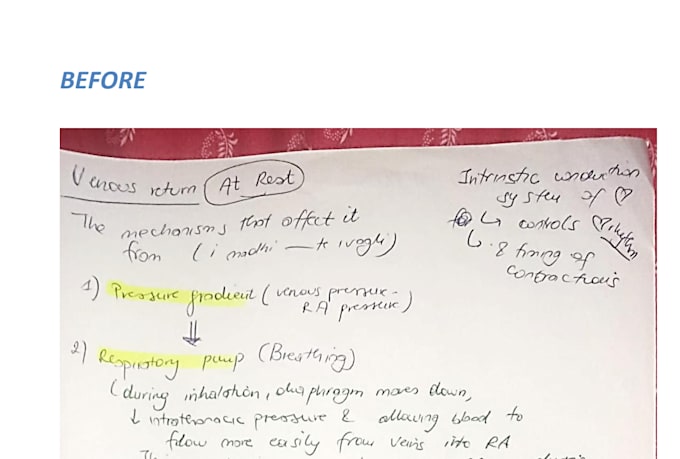 BEFORE
Venous return (At Rest)
The mechanisms that affect it
from (i madhi — te vogli)
1) Pressure gradient (venous pressure -
RA pressure)
⇓
2) Respiratory pump (Breathing)
(during inhalation, diaphragm moves down,
↓ intrathoracic pressure & allowing blood to
flow more easily from veins into RA
Intrinstic conduction
system of ♡
↳ controls ♡ rhythm
↳ & timing of
contractions